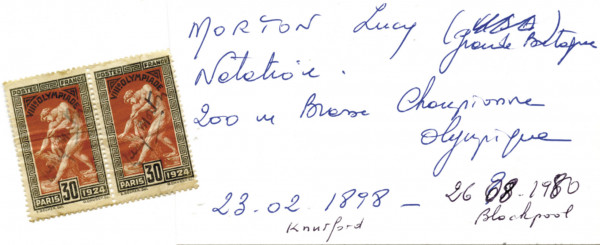 POSTES FRANCE POSTES FRANCE
VIIIe OLYMPIADE VIIIe OLYMPIADE
30 30
PARIS 1924 PARIS 1924
MORTON Lucy (
Grande Bretagne
Natation.
200 m Brasse Championne
Olympique
23.02.1898 - 26 08-1980
Knutford Blackpool